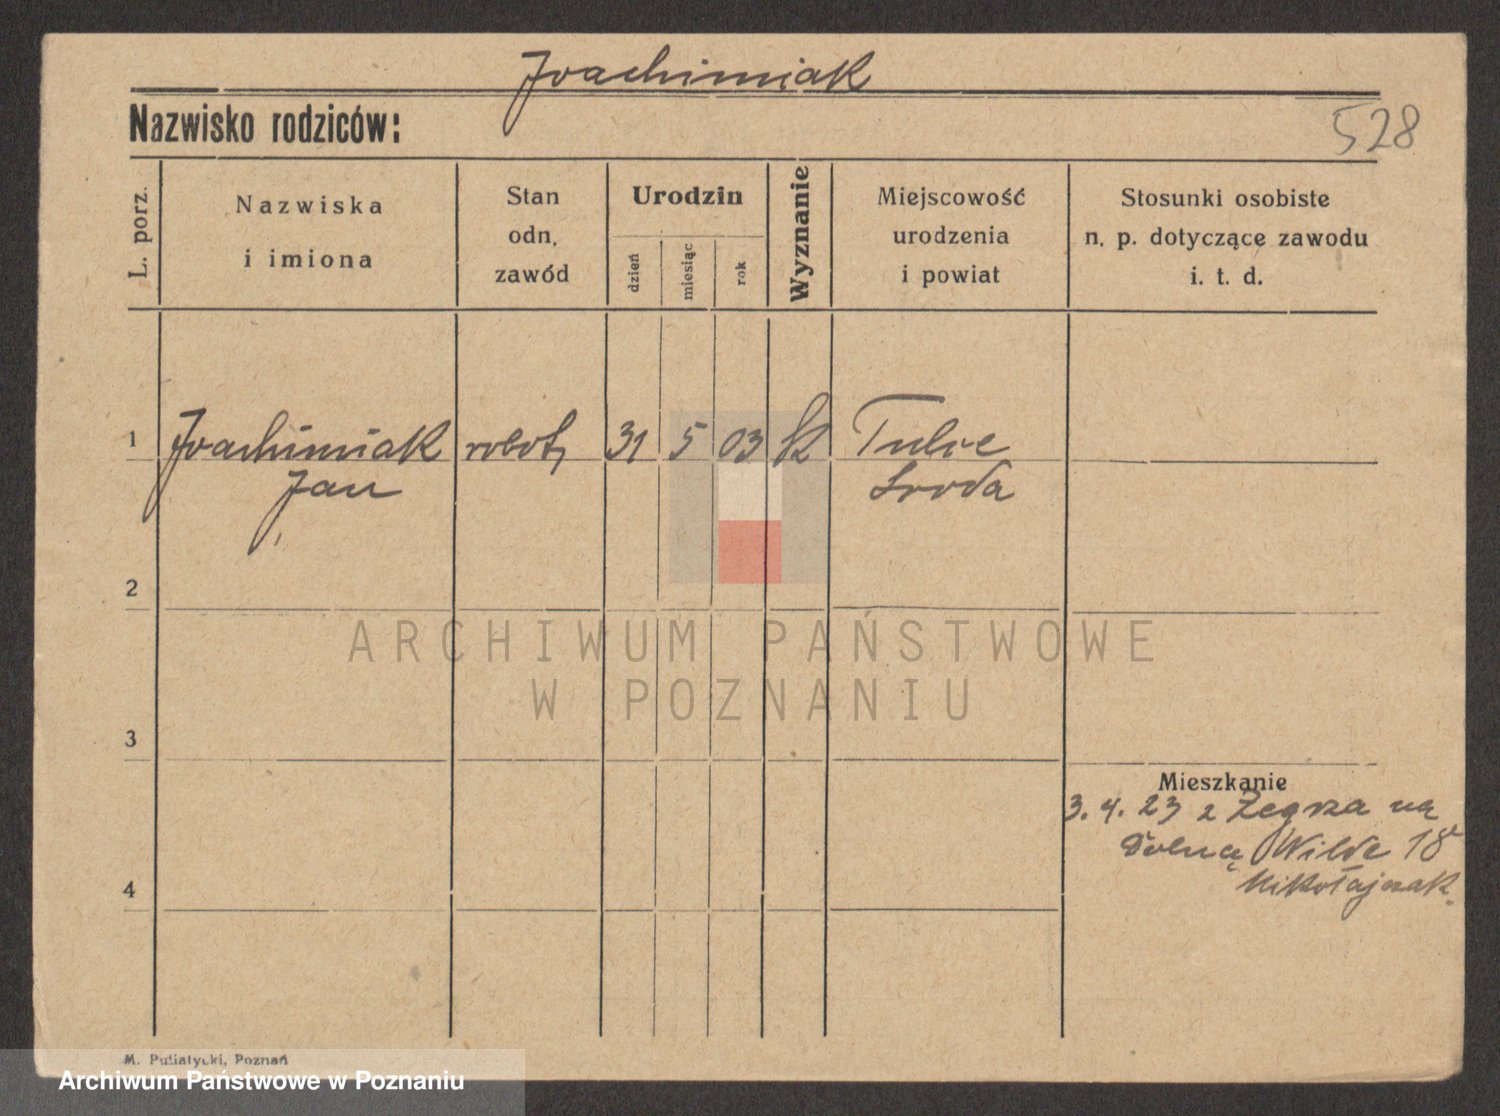 Joachimiak
Nazwisko rodziców:
528
L. porz.
Nazwiska
i imiona
Stan
odn.
zawód
Urodzin
dzień
miesiąc
rok
Wyznanie
Miejscowość
urodzenia
i powiat
Stosunki osobiste
n. p. dotyczące zawodu
i. t. d.
1 Joachimiak robotn 31 5 03 k Tulce
Jan Środa
2
ARCHIWUM PAŃSTWOWE
W POZNANIU
3
Mieszkanie
3.4.23 z Żegrza na
Dolną Wildę 18
Mikołajczak.
4
M. Putiatycki, Poznań
Archiwum Państwowe w Poznaniu